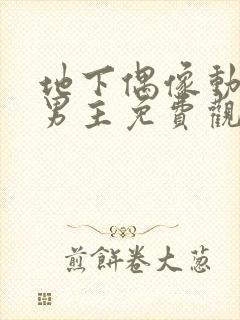 地下偶像動
男主免費觀
煎餅卷大葱